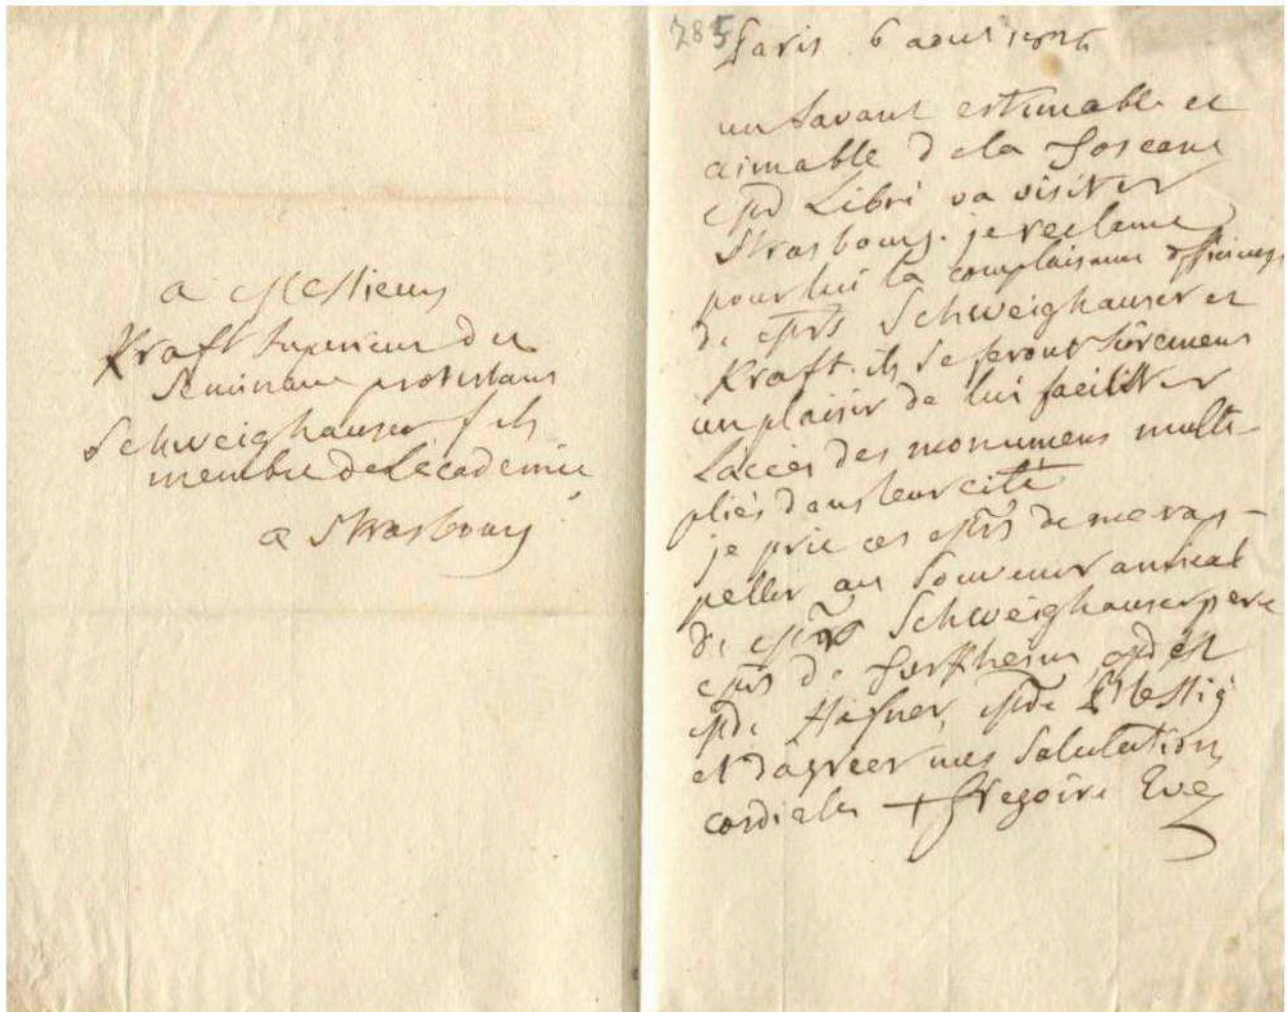 a Messieurs
Kraft Superieur du
Seminaire protestant
Schweighauser fils
membre de L'academie
a Strasbourg
285
Paris 6 aout
un Savant estimable et
aimable de la Toscane
Mr Libri va visiter
Strasbourg. je reclame
pour lui la complaisance
de Mrs Schweighauser et
Kraft. ils se feront sûrement
un plaisir de lui faciliter
L'accès des monumens multi-
pliés dans leur cité
je prie ces Mrs de me rap-
peller au Souvenir amical
de Mrs Schweighauser pere
Mrs de
Mr Hafner, Mr
et d'agréer mes Salutations
cordiales + Gregoire Eve